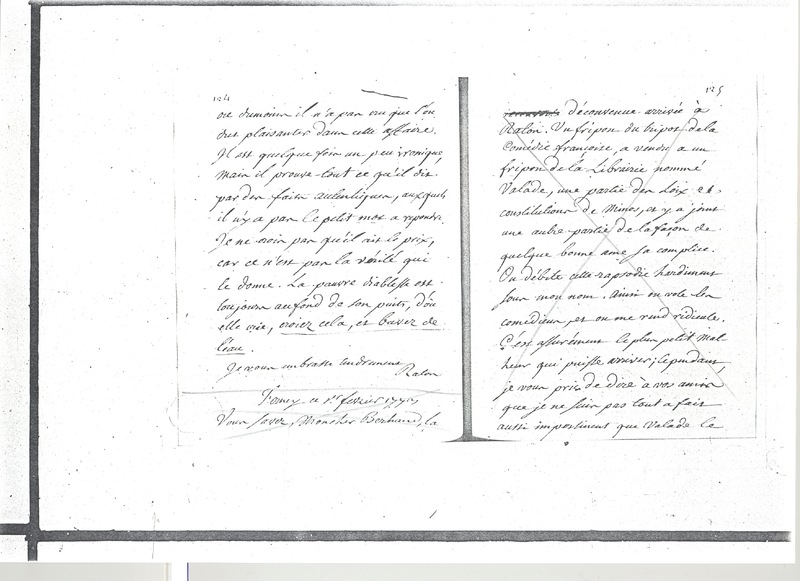 124
ou du moins il n'a pas cru que l'on
dut plaisanter dans cette affaire.
Il est quelque fois un peu ironique,
mais il prouve tout ce qu'il dit
par des faits autentiques, auxquels
il n'y a pas le petit mot a repondre.
Je ne crois pas qu'il ait le prix,
car ce n'est pas la vérité qui
le donne. La pauvre diablesse est
toujours au fond de son puits, d'où
elle crie, croiez cela, et buvez de
l'eau.
Je vous embrasse tendrement
Raton
Ferney ce 1er fevrier
Vous savez, Mon cher Bertrand, la
125
déconvenue arrivée à
Raton. Un fripon du tripot de la
Comédie françoise, a vendu a un
fripon de la Librairie nommé
Valade, une partie des Loix et
constitutions de Minos, et y a joint
une autre partie de la façon de
quelque bonne ame sa complice.
On débite cette rapsodie hardiment
sous mon nom. Ainsi on vole les
comédiens, et on me rend ridicule.
C'est assurément le plus petit mal
heur qui puisse arriver; cependant,
je vous prie de dire à vos amis
que je ne suis pas tout a fait
aussi impertinent que Valade le